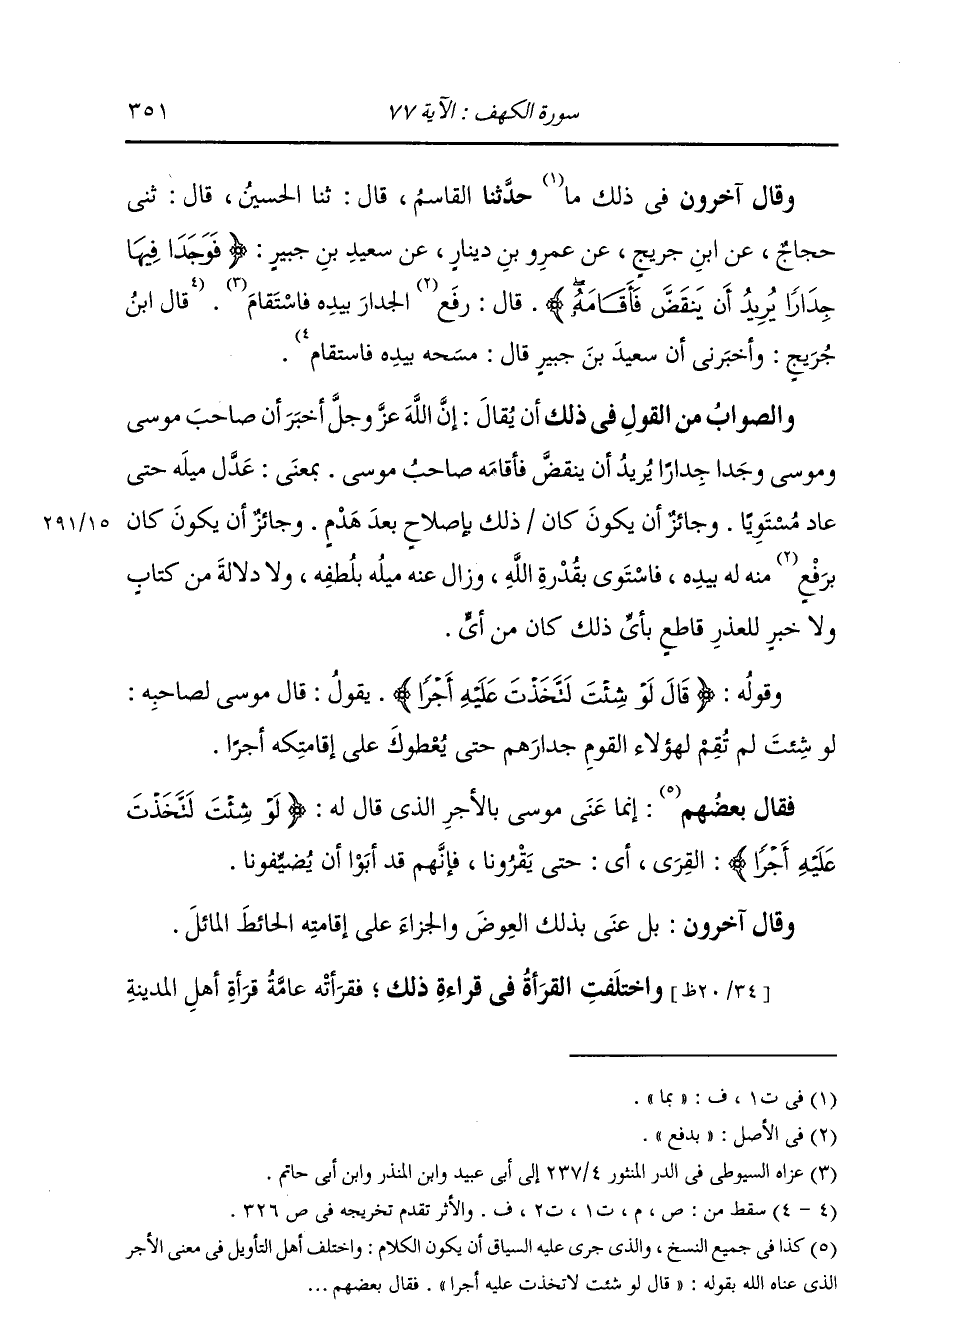 سورة الكهف : الآية ٧٧ ٣٥١
وقال آخرون فى ذلك ما(١) حدَّثنا القاسمُ ، قال : ثنا الحسينُ ، قال : ثنى
حجاجٌ ، عن ابنِ جريجٍ ، عن عمرِو بنِ دينارٍ ، عن سعيدِ بنِ جبيرٍ : ﴿ فَوَجَدَا فِيهَا
جِدَارًا يُرِيدُ أَن يَنقَضَّ فَأَقَامَهُۥ ﴾ . قال : رفَع(٢) الجدارَ بيدِه فاسْتَقامَ(٣) . (٤ قال ابنُ
جُرَيجٍ : وأخبَرنى أن سعيدَ بنَ جبيرٍ قال : مسَحه بيدِه فاستقام ٤) .
والصوابُ من القولِ فى ذلك أن يُقالَ : إنَّ اللَّهَ عزَّ وجلَّ أخبَرَ أن صاحبَ موسى
وموسى وجَدا جِدارًا يُريدُ أن ينقضَّ فأقامَه صاحبُ موسى . بمعنَى : عَدَّل ميلَه حتى
عاد مُسْتَوِيًا . وجائزٌ أن يكونَ كان / ذلك بإصلاحٍ بعدَ هَدْمٍ . وجائزٌ أن يكونَ كان ٢٩١/١٥
برَفْعٍ(٢) منه له بيدِه ، فاسْتَوى بقُدْرةِ اللَّهِ ، وزال عنه ميلُه بلُطفِه ، ولا دلالةَ من كتابٍ
ولا خبرٍ للعذرِ قاطعٍ بأىِّ ذلك كان من أىٍّ .
وقولُه : ﴿ قَالَ لَوْ شِئْتَ لَتَّخَذْتَ عَلَيْهِ أَجْرًا ﴾ . يقولُ : قال موسى لصاحبِه :
لو شِئتَ لم تُقِمْ لهؤلاء القومِ جدارَهم حتى يُعْطوكَ على إقامتِكه أجرًا .
فقال بعضُهم(٥) : إنما عَنَى موسى بالأجرِ الذى قال له : ﴿ لَوْ شِئْتَ لَتَّخَذْتَ
عَلَيْهِ أَجْرًا ﴾ : القِرَى ، أى : حتى يَقْرُونا ، فإنَّهم قد أبَوْا أن يُضيِّفونا .
وقال آخرون : بل عنَى بذلك العِوضَ والجزاءَ على إقامتِه الحائطَ المائلَ .
[ ٢٠/٣٤ظ] واختلَفتِ القرَأةُ فى قراءةِ ذلك ؛ فقرَأتْه عامَّةُ قرَأةِ أهلِ المدينةِ
(١) فى ت١ ، ف : « بما » .
(٢) فى الأصل : « بدفع » .
(٣) عزاه السيوطى فى الدر المنثور ٢٣٧/٤ إلى أبى عبيد وابن المنذر وابن أبى حاتم .
(٤ - ٤) سقط من : ص ، م ، ت١ ، ت٢ ، ف . والأثر تقدم تخريجه فى ص ٣٢٦ .
(٥) كذا فى جميع النسخ ، والذى جرى عليه السياق أن يكون الكلام : واختلف أهل التأويل فى معنى الأجر
الذى عناه الله بقوله : « قال لو شئت لاتخذت عليه أجرا » . فقال بعضهم ...